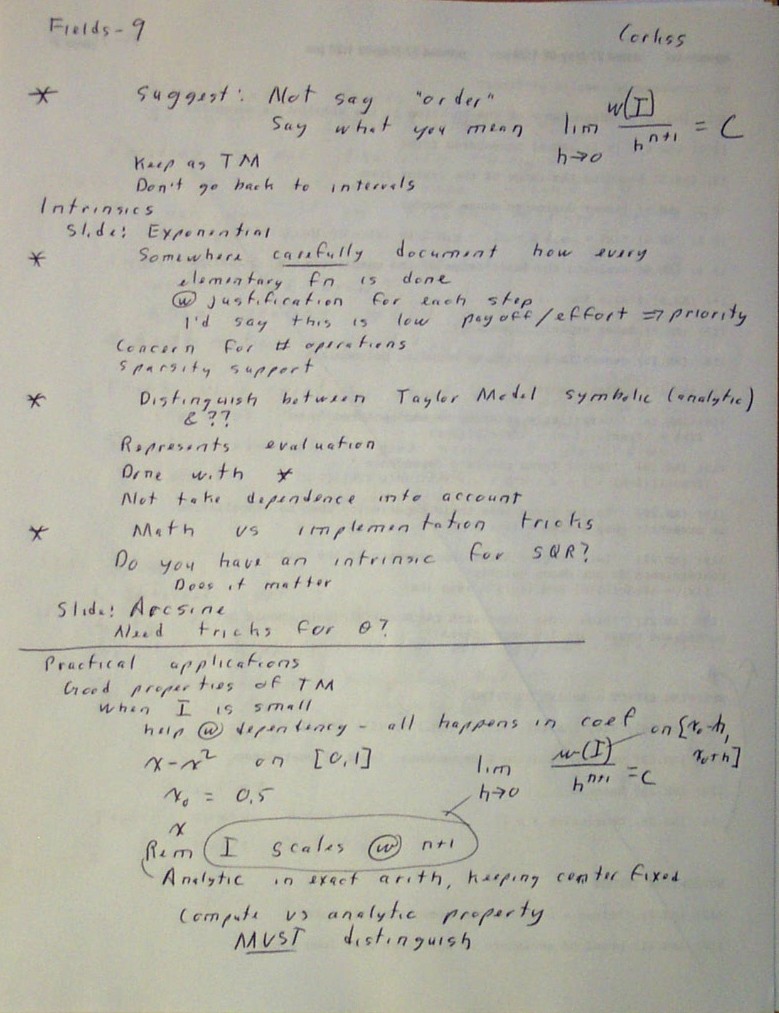 Fields-9
Corliss
* Suggest: Not say "order"
Say what you mean lim h→0 w(I)/h^{n+1} = C
Keep as TM
Don't go back to intervals
Intrinsics
Slide: Exponential
* Somewhere carefully document how every
elementary fn is done
ⓦ justification for each step
I'd say this is low payoff/effort ⇒ priority
Concern for # operations
Sparsity support
* Distinguish between Taylor Model symbolic (analytic)
& ??
Represents evaluation
Done with *
Not take dependence into account
* Math vs implementation tricks
Do you have an intrinsic for SQR?
Does it matter
Slide: Arcsine
Need tricks for θ?
Practical applications
Good properties of TM
When I is small
help ⓦ dependency - all happens in coef
x-x² on [0,1]
lim h→0 w(I)/h^{n+1} = C on [x₀-h, x₀+h]
x₀ = 0.5
x
Rem I scales ⓦ n+1
Analytic in exact arith, keeping center fixed
Compute vs analytic property
MUST distinguish